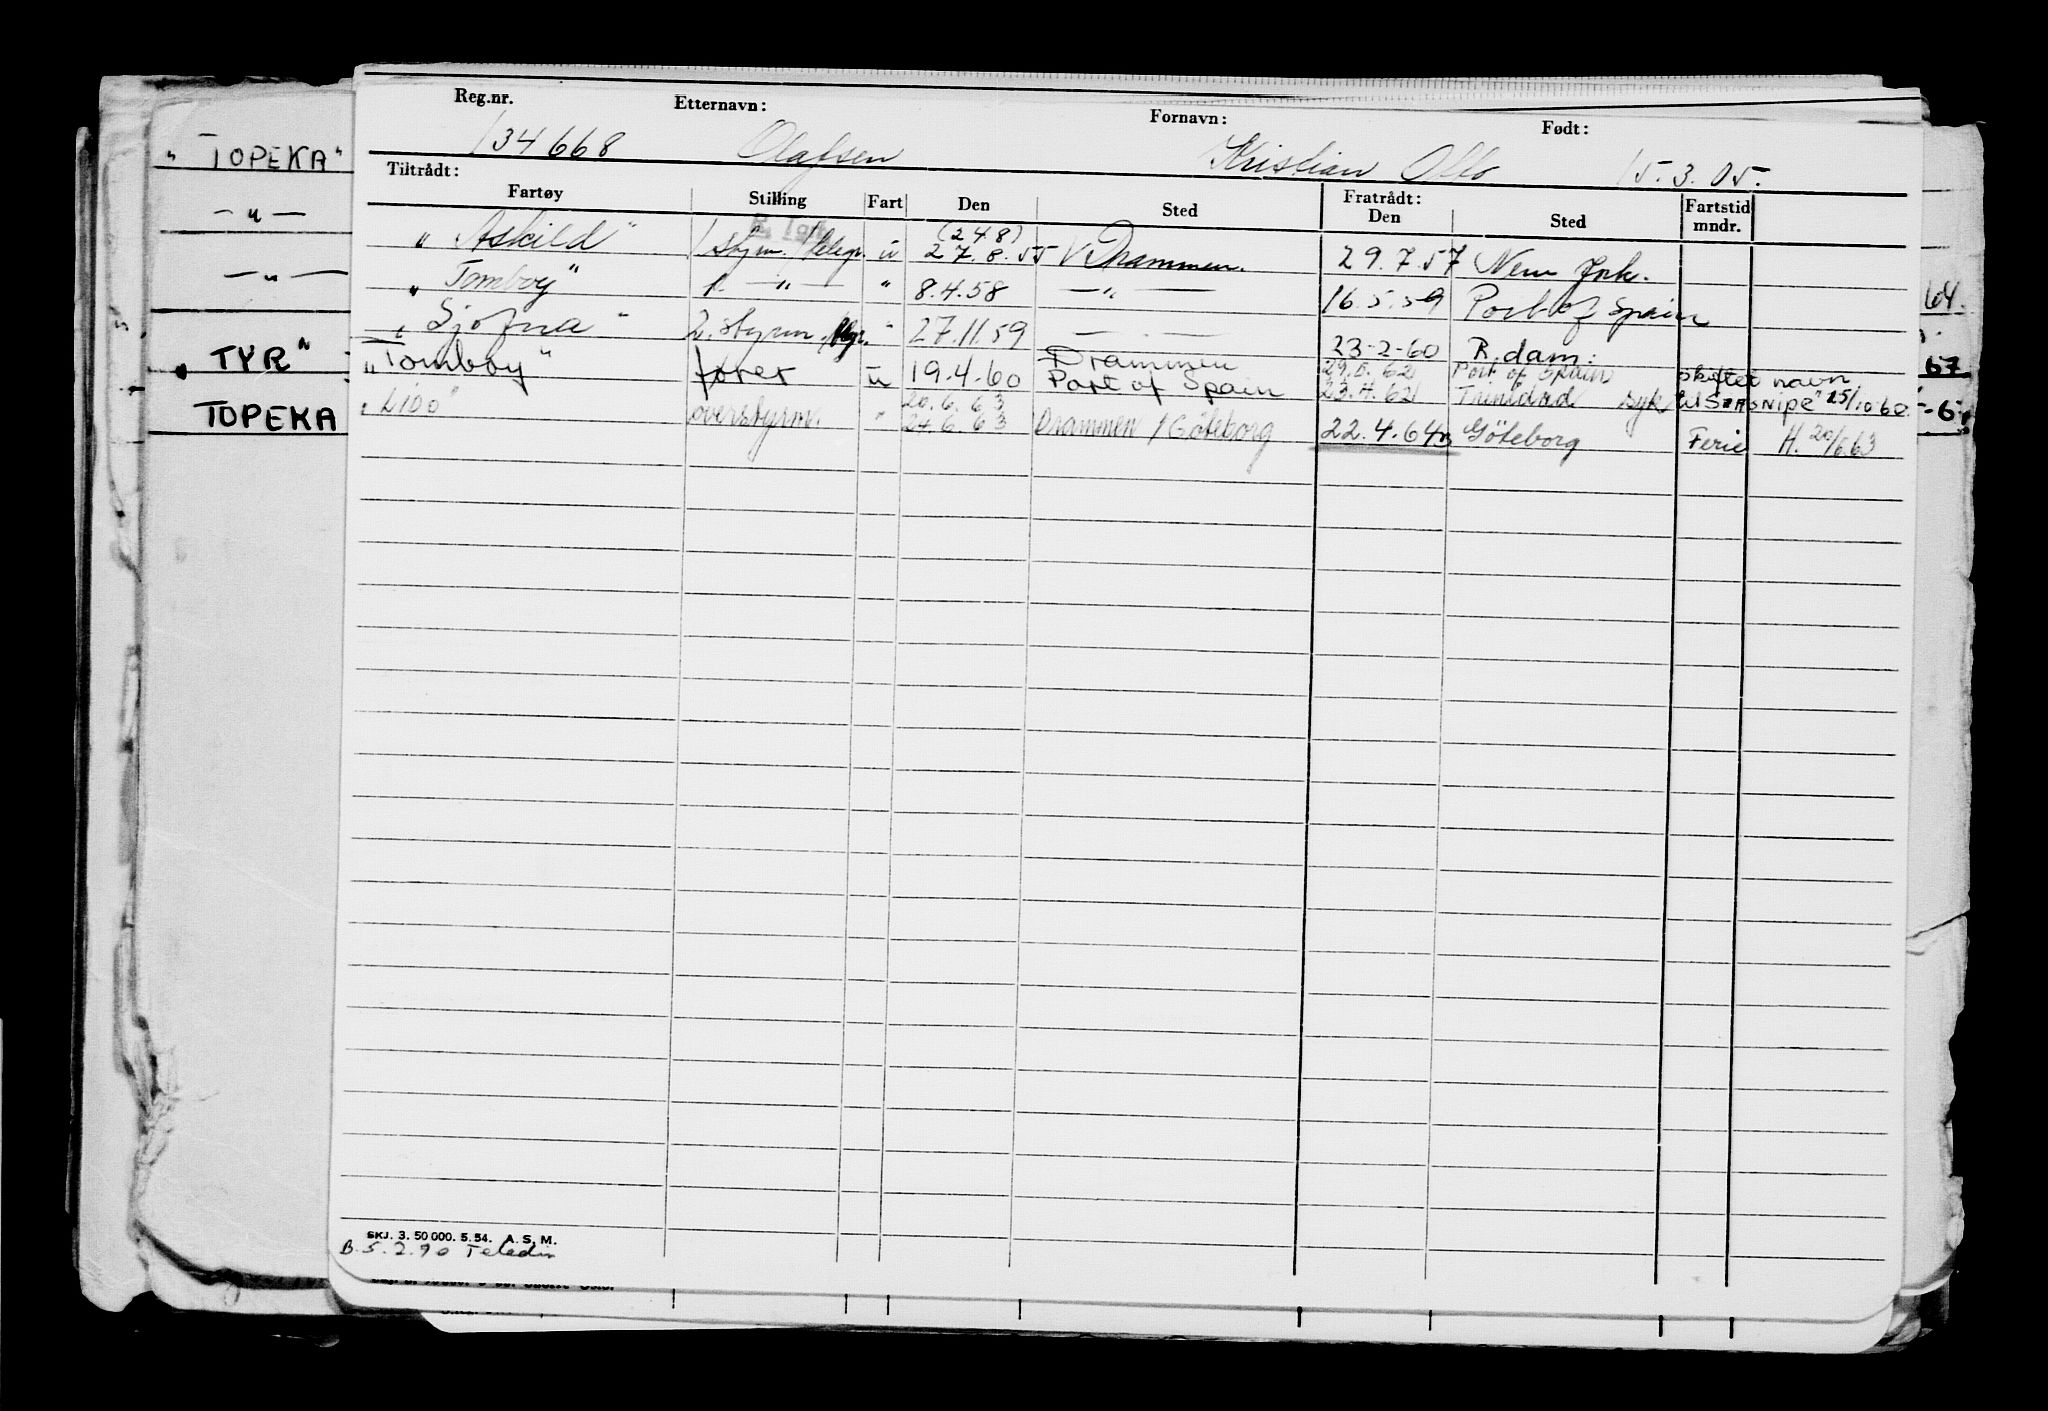 Reg.nr. Etternavn: Fornavn: Født:
134668 Olafsen Kristian Olbo 15.3.05.
Tiltrådt: Fratrådt:
Fartøy Stilling Fart Den Sted Den Sted Fartstid mndr.
(248)
„Askild" 1 styrm. /telegr. u 27.8.55 V. Drammen. 29.7.57 New York.
„Tomboy" 1. —"— " 8.4.58 —"— 16.5.59 Port of Spain
„Sjofna" 2. styrm. " 27.11.59 — — 23-2-60 R.dam.
„Tomboy" fører u 19.4.60 Drammen 29.5.62 Port of Spain skiftet navn
Port of Spain 23.4.62 Trinidad syk til "SARSNIPE" 25/10-60
„LIDO" overstyrm. " 20.6.63
24.6.63 Drammen / Göteborg 22.4.64 Göteborg Ferie H. 20/6.63
"TOPEKA"
—"—
—"—
"TYR"
TOPEKA
64.
67
SKJ. 3. 50 000. 5. 54. A. S. M.
B. 5.2.90 Teledin